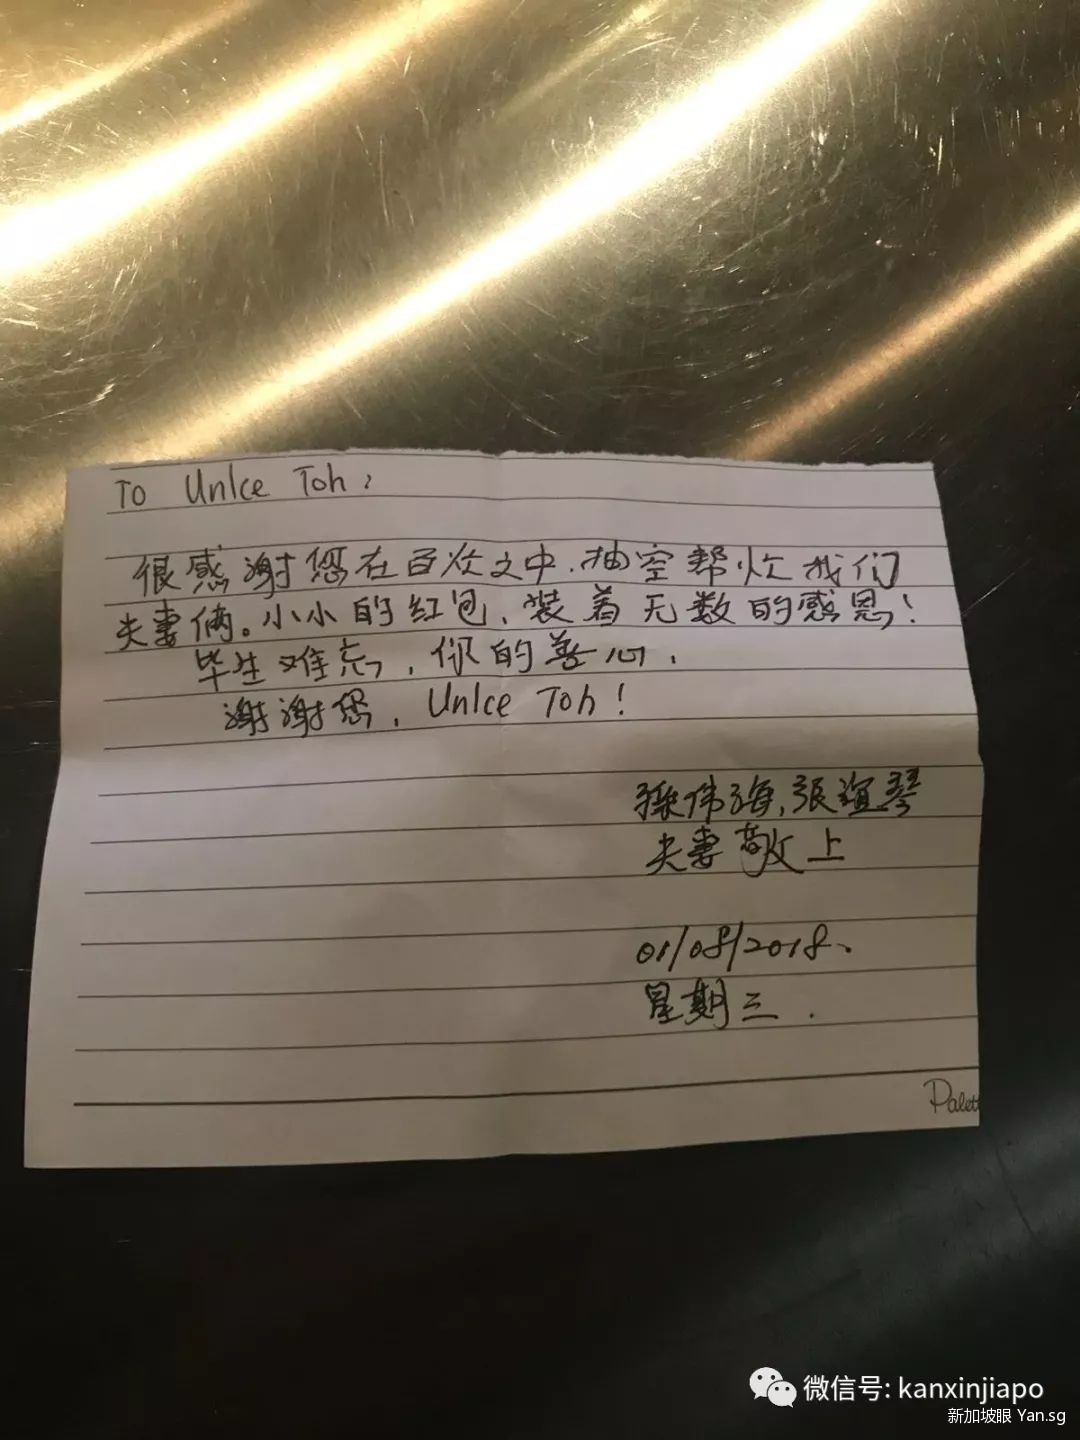 To Unlce Toh:
很感谢您在百忙之中.抽空帮忙我们
夫妻俩。小小的红包,装着无数的感恩!
毕生难忘,你的善心.
谢谢您, Unlce Toh!
孫伟海,张谊琴
夫妻敬上
01/08/2018.
星期三.
Palett
微信号: kanxinjiapo
新加坡眼 Yan.sg